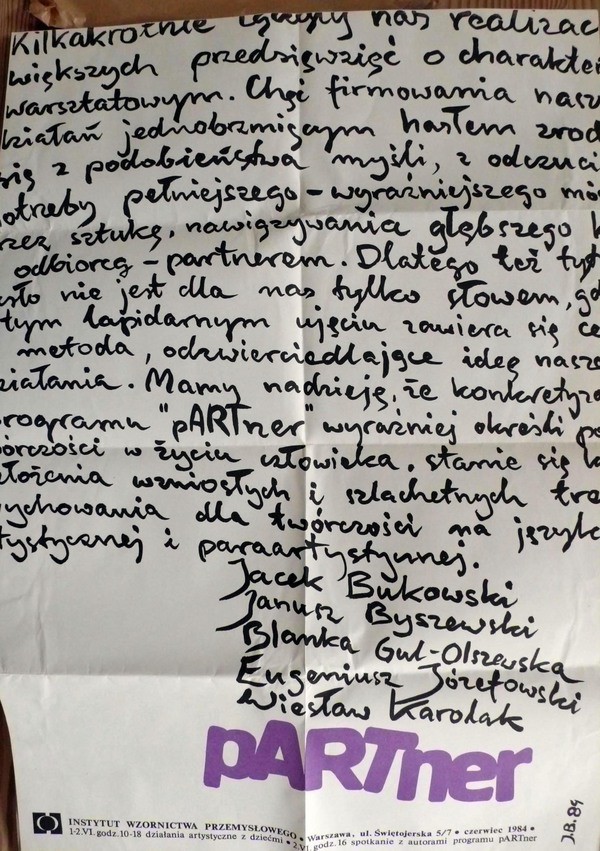 Kilkakrotnie łączyły nas realizac
większych przedsięwzięć o charakte
warsztatowym. Chęć firmowania nasz
ziałań jednobrzmiącym hasłem zrod
się z podobieństwa myśli, z odczuci
otrzeby pełniejszego – wyraźniejszego mó
rzez sztukę, nawiązywania głębszego k
odbiorcą – partnerem. Dlatego też tyt
sło nie jest dla nas tylko słowem, gd
tym lapidarnym ujęciu zawiera się ce
metoda, odzwierciedlające ideę nasze
ziałania. Mamy nadzieję, że konkretyza
rogramu "pARTner" wyraźniej określi po
órczości w życiu człowieka. stanie się
łożenia wzniosłych i szlachetnych tre
ychowania dla twórczości na język
tystycznej i paraartystycznej.
Jacek Bukowski
Janusz Byszewski
Blanka Gul-Olszewska
Eugeniusz Józefowski
Wiesław Karolak
pARTner
J.B.84
INSTYTUT WZORNICTWA PRZEMYSŁOWEGO • Warszawa, ul. Świętojerska 5/7 • czerwiec 1984 •
1-2.VI.godz.10-18 działania artystyczne z dziećmi • 2.VI.godz.16 spotkanie z autorami programu pARTner